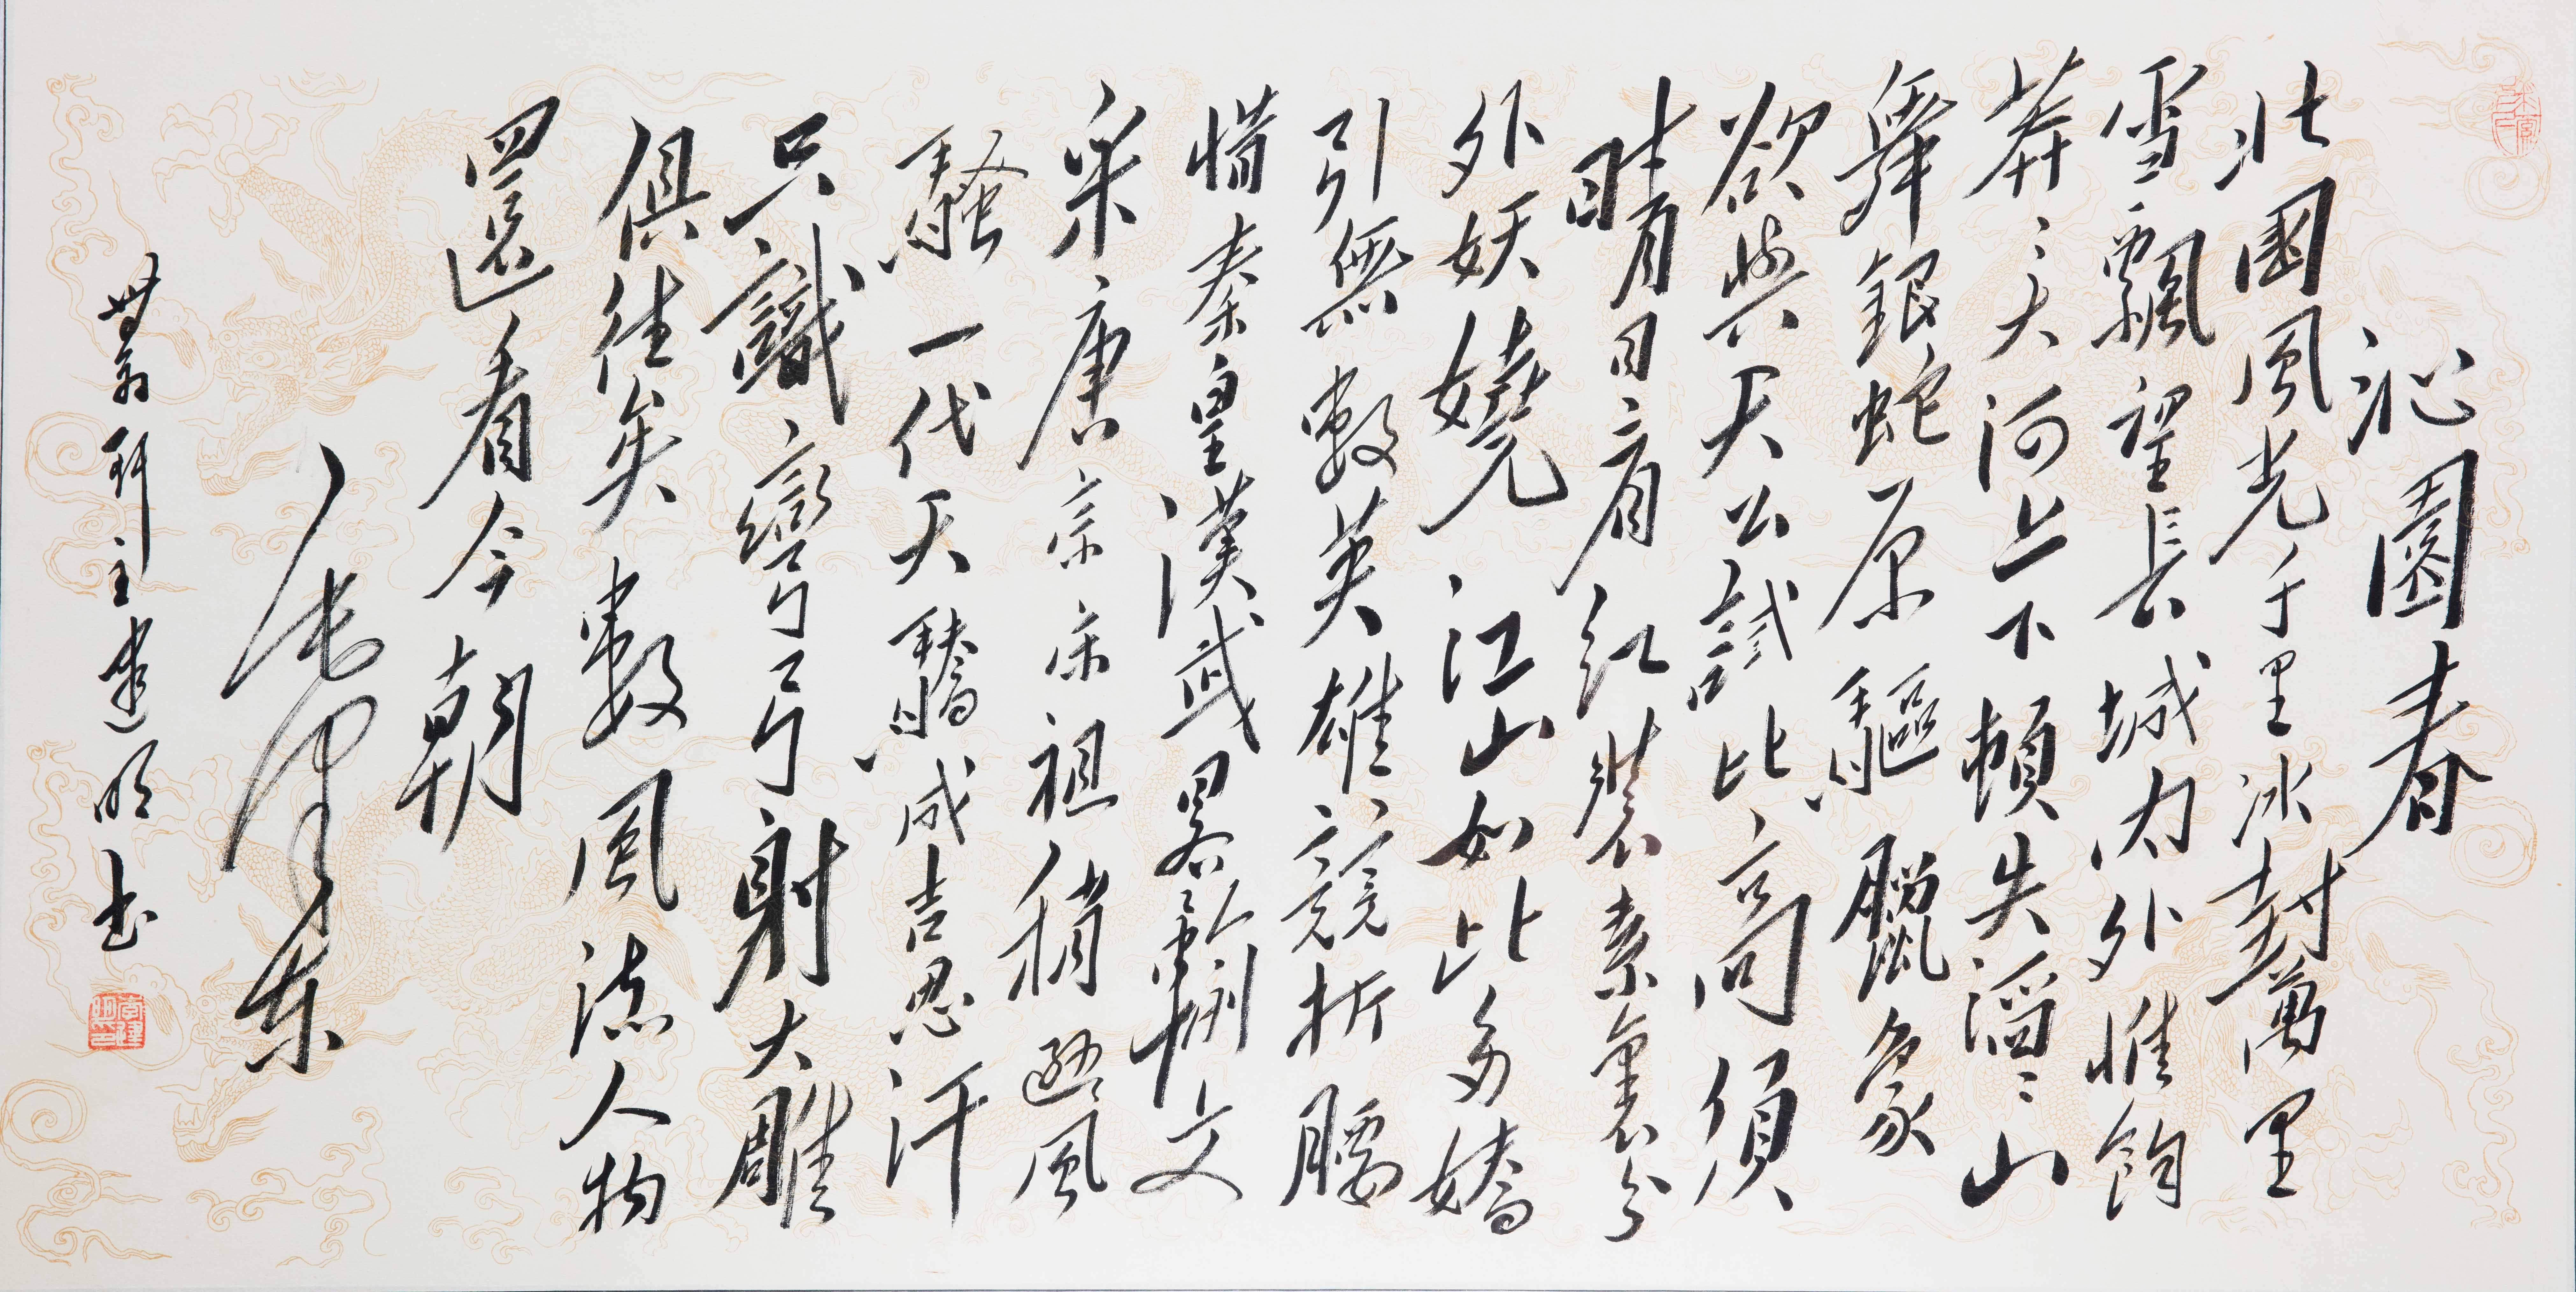 沁園春
北國風光千里冰封萬里
雪飄望長城内外惟餘
莽〻大河上下頓失滔〻山
舞銀蛇原驅臘象
欲與天公試比高須
晴日看紅裝素裹分
外妖嬈江山如此多嬌
引無數英雄競折腰
惜秦皇漢武畧輸文
采唐宗宋祖稍遜風
騷一代天驕成吉思汗
只識彎弓射大雕
俱往矣數風流人物
還看今朝
毛澤东
主建明书